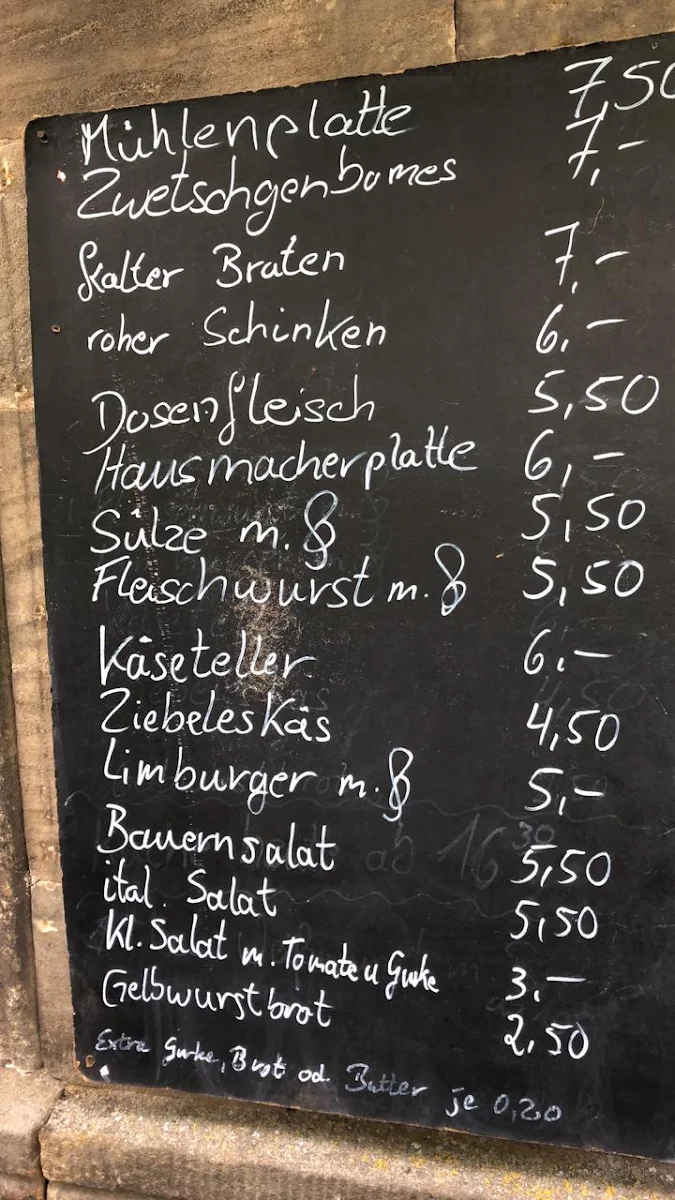 Mühlenplatte 7,50
Zwetschgenbames 7,-
kalter Braten 7,-
roher Schinken 6,-
Dosenfleisch 5,50
Hausmacherplatte 6,-
Sülze m. 5,50
Fleischwurst m. 5,50
Käseteller 6.-
Ziebeleskäs 4,50
Limburger m. 5,-
Bauernsalat 5,50
ital. Salat 5,50
kl. Salat m. Tomate u Gurke 3.-
Gelbwurstbrot 2,50
Extra Gurke, Brot od. Butter je 0,20